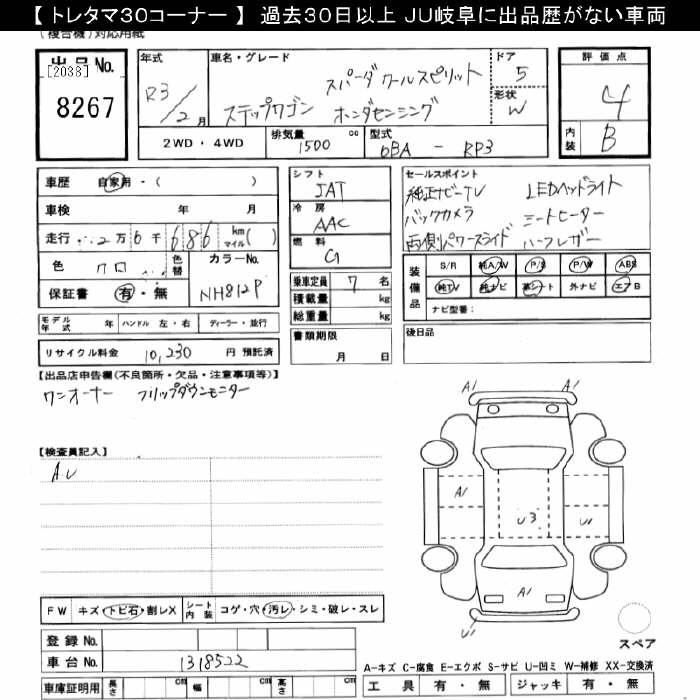 【 トレタマ30コーナー 】 過去30日以上 JU岐阜に出品歴がない車両
(複合機)対応用紙
出品No.
[2033]
8267
年式
R3/2月
車名・グレード
スパーダ クールスピリット
ステップワゴン ホンダセンシング
ドア
5
形状
W
評価点
4
内装
B
2WD・4WD
排気量
1500 cc
型式
DBA - RP3
車歴 自家用・( )
車検 年 月
走行 2万6千686 km マイル( )
色 クロ 色替
カラーNo.
NH812P
保証書 有・無
シフト
JAT
冷房
AAC
燃料
G
乗車定員 7 名
積載量 kg
総重量 kg
書類期限
月 日
セールスポイント
純正ナビ-TV LEDヘッドライト
バックカメラ シートヒーター
両側パワースライド ハーフレザー
装備品
S/R 純A/W P/S P/W ABS
純TV 純ナビ 革シート 外ナビ エアB
ナビ型番:
後日品
モデル年式 年 ハンドル 左・右 ディーラー・並行
リサイクル料金 10,230 円 預託済
【出品店申告欄(不良箇所・欠品・注意事項等)】
ワンオーナー フリップダウンモニター
【検査員記入】
AU
A1 A1
A1 U3 U1
A1
U1
スペア
FW キズ・トビ石・割レX シート内装 コゲ・穴・汚レ・シミ・破レ・スレ
登録No.
車台No. 1318522
車庫証明用 長さ cm 幅 cm 高さ cm
A-キズ C-腐食 E-エクボ S-サビ U-凹ミ W-補修 XX-交換済
工具 有・無 ジャッキ 有・無